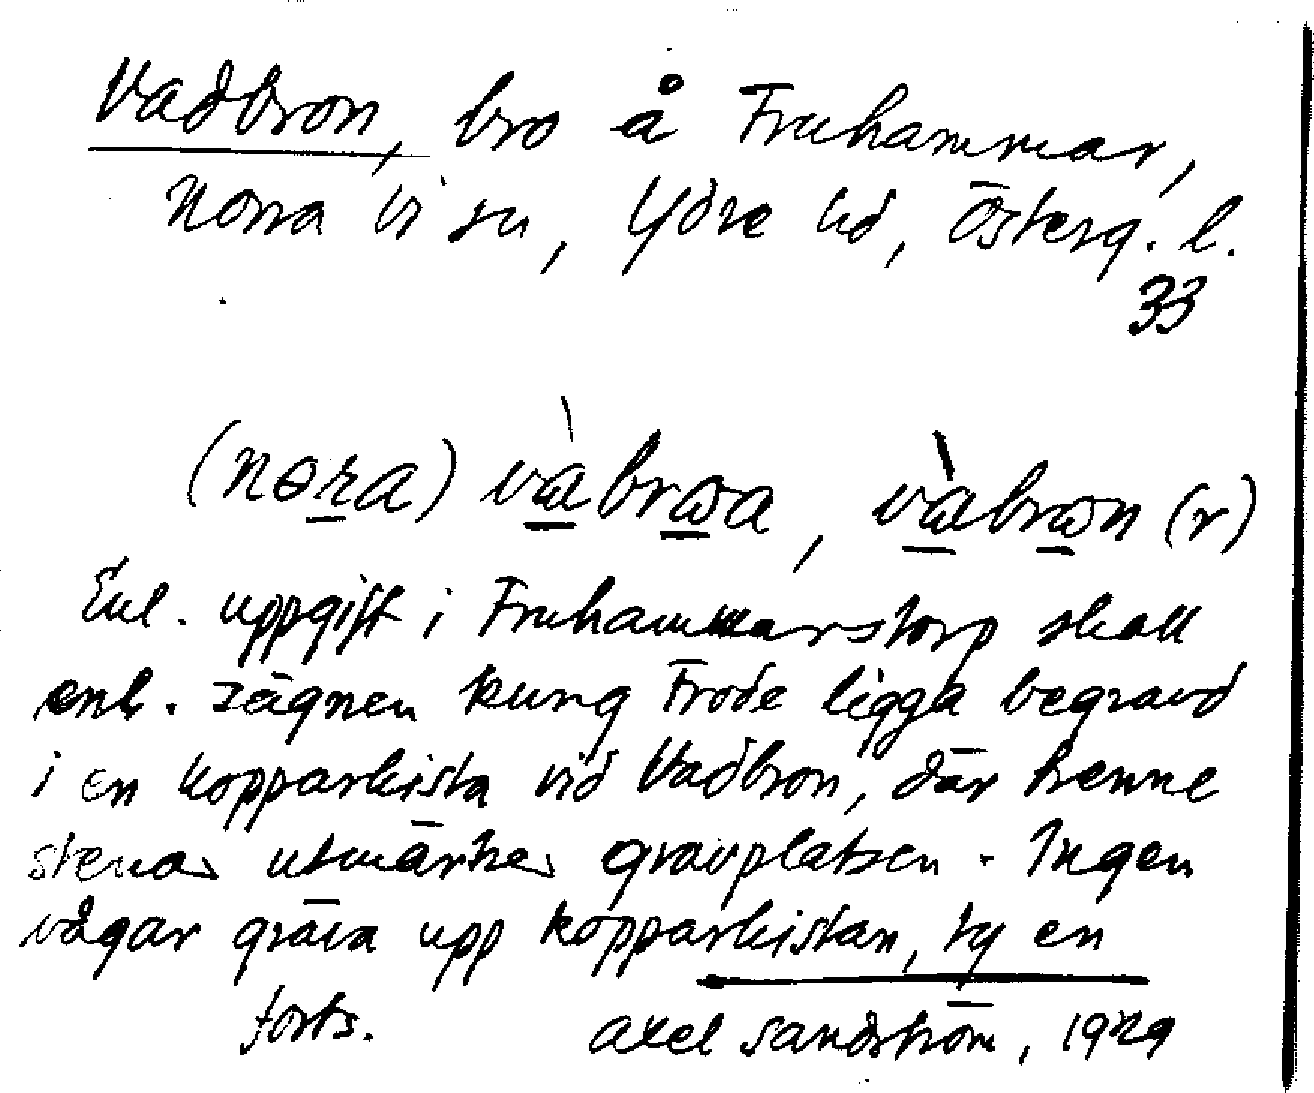 Vadbron, bro å Fruhammar,
Norra Vi sn, Ydre hd, Österg. l.
33
(nɵra) vàbrɷa, vàbrɷn (r)
Enl. uppgift i Fruhammarstorp skall
enl. sägnen kung Frode ligga begravd
i en kopparkista vid Vadbron, där trenne
stenar utmärker gravplatsen. Ingen
vågar gräva upp kopparkistan, ty en
forts. Axel Sandström, 1929